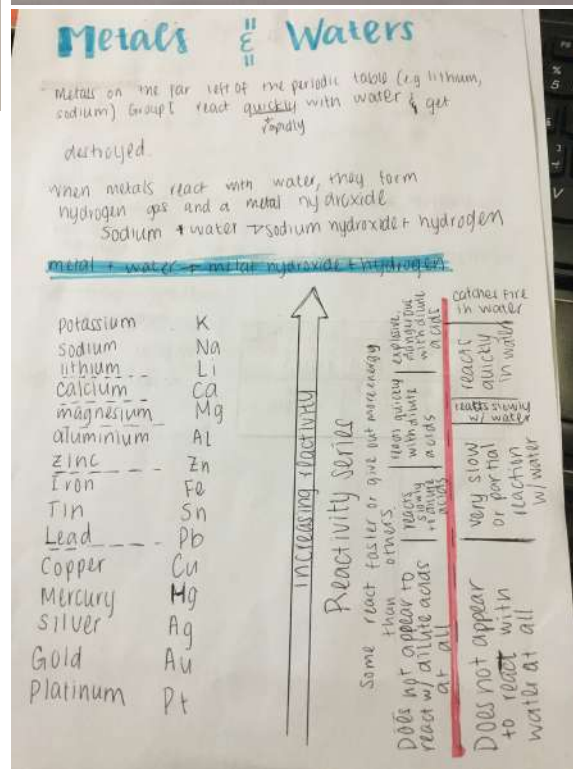 Metals & Waters
Metals on the far left of the periodic table (e.g lithium,
sodium) Group 1 react quickly with water & get
rapidly
destroyed.
when metals react with water, they form
hydrogen gas and a metal hydroxide
Sodium + water → sodium hydroxide + hydrogen
metal + water → metal hydroxide + hydrogen
Potassium K
sodium Na
lithium Li
calcium Ca
magnesium Mg
aluminium Al
zinc Zn
Iron Fe
Tin Sn
Lead Pb
Copper Cu
Mercury Hg
silver Ag
Gold Au
Platinum Pt
increasing reactivity
Reactivity series
Some react faster or give out more energy
than others
explosive,
dangerous
with dilute
acids
reacts quickly
with dilute
acids
reacts
slowly
dilute
acids
Does not appear to
react w/ dilute acids
at all
catches fire
in water
reacts
quickly
in water
reacts slowly
w/ water
very slow
or partial
reaction
w/water
Does not appear
to react with
water at all